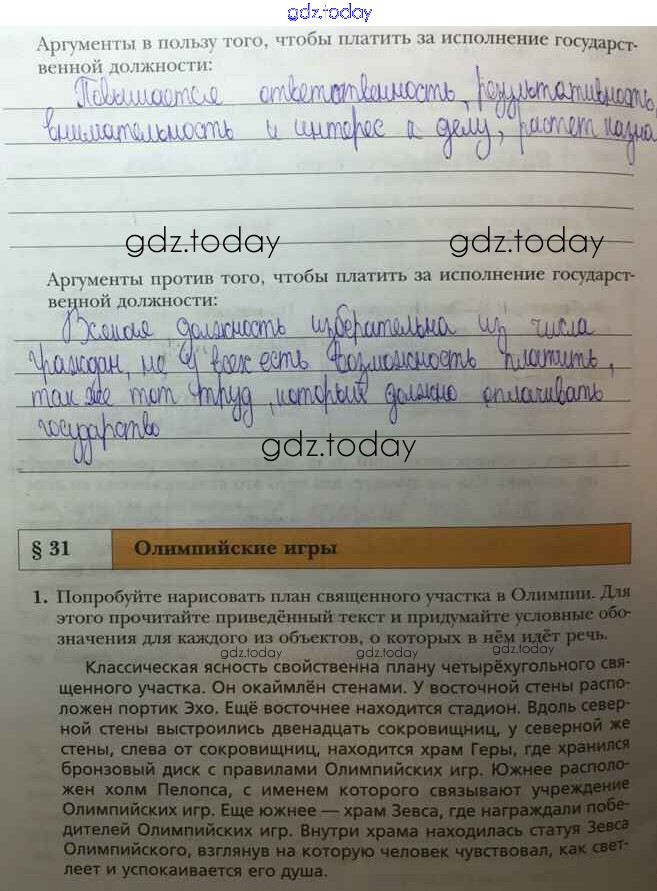 gdz.today
Аргументы в пользу того, чтобы платить за исполнение государст-
венной должности:
Повышается ответственность, результативность,
внимательность и интерес к делу, растет казна
gdz.today gdz.today
Аргументы против того, чтобы платить за исполнение государст-
венной должности:
должность избирательна из числа
граждан, не у всех есть возможность платить,
так же тот труд, который должно оплачивать
государство
gdz.today
§ 31 Олимпийские игры
1. Попробуйте нарисовать план священного участка в Олимпии. Для
этого прочитайте приведённый текст и придумайте условные обо-
значения для каждого из объектов, о которых в нём идёт речь.
gdz.today gdz.today gdz.today
Классическая ясность свойственна плану четырёхугольного свя-
щенного участка. Он окаймлён стенами. У восточной стены распо-
ложен портик Эхо. Ещё восточнее находится стадион. Вдоль север-
ной стены выстроились двенадцать сокровищниц, у северной же
стены, слева от сокровищниц, находится храм Геры, где хранился
бронзовый диск с правилами Олимпийских игр. Южнее располо-
жен холм Пелопса, с именем которого связывают учреждение
Олимпийских игр. Еще южнее — храм Зевса, где награждали побе-
дителей Олимпийских игр. Внутри храма находилась статуя Зевса
Олимпийского, взглянув на которую человек чувствовал, как свет-
леет и успокаивается его душа.